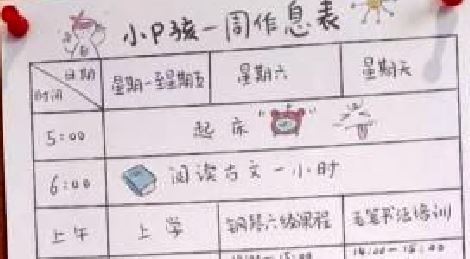 小P孩一周作息表
日期
时间
星期一至星期五 星期六 星期天
5:00 起床
6:00 阅读古文一小时
上午 上学 钢琴六级课程 毛笔书法培训